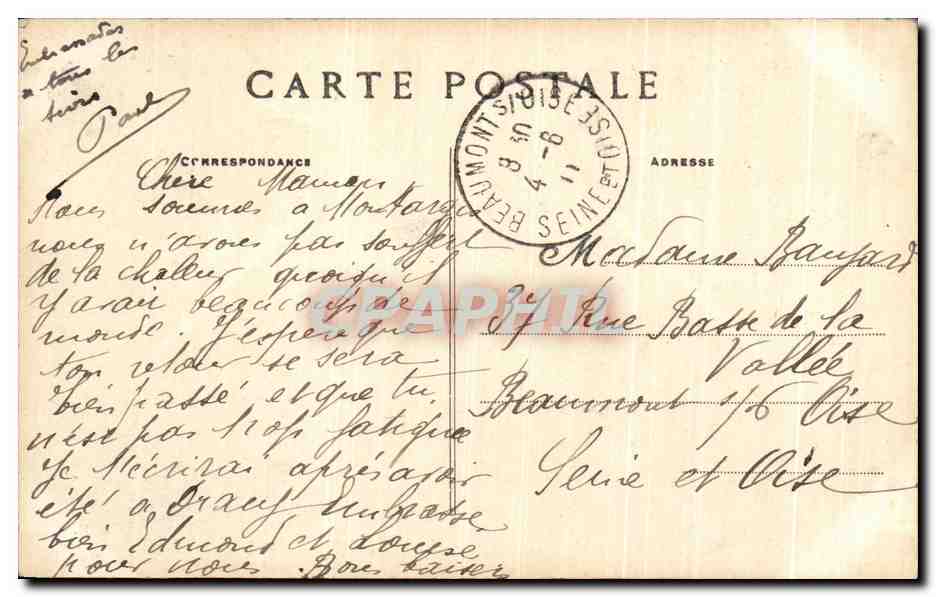 Embrassades
a tous les
tiens
Paul
CARTE POSTALE
CORRESPONDANCE
ADRESSE
BEAUMONT S/OISE
SEINE ET OISE
8 30
4 -6
11
Chere Maman
Nous sommes a Montargis
nous n'avons pas souffert
de la chaleur quoiqu'il
y avait beaucoup de
monde. J'espère que
ton retour se sera
bien passé et que tu
n'est pas trop fatiguée
Je t'écrirai après avoir
été a Embrasse
bien Edmond et Louise
pour nous. Bons baisers
Madame
37 Rue Basse de la
Vallée
Beaumont s/s Oise
Seine et Oise
CPAPHIL